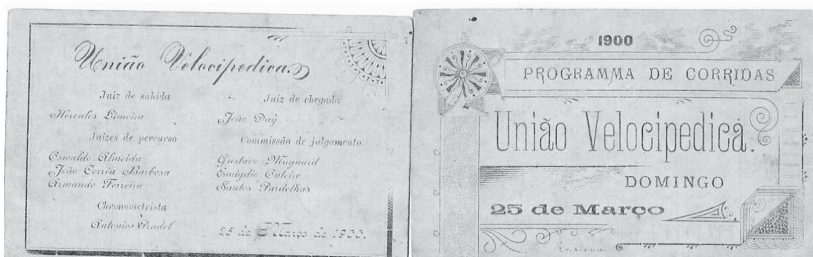 União Velocipedica
Juiz de sahida
Hercules Limeira
Juizes de percurso
Oswaldo Almeida
João Corrêa Barbosa
Armando Ferreira
Chronometrista
Antonios
Juiz de chegada
João Daÿ
Commissão de julgamento
Gustavo
Emygdio
Santos Pardelhas
25 de Março de 1900.
1900
PROGRAMMA DE CORRIDAS
União Velocipedica.
DOMINGO
25 de Março